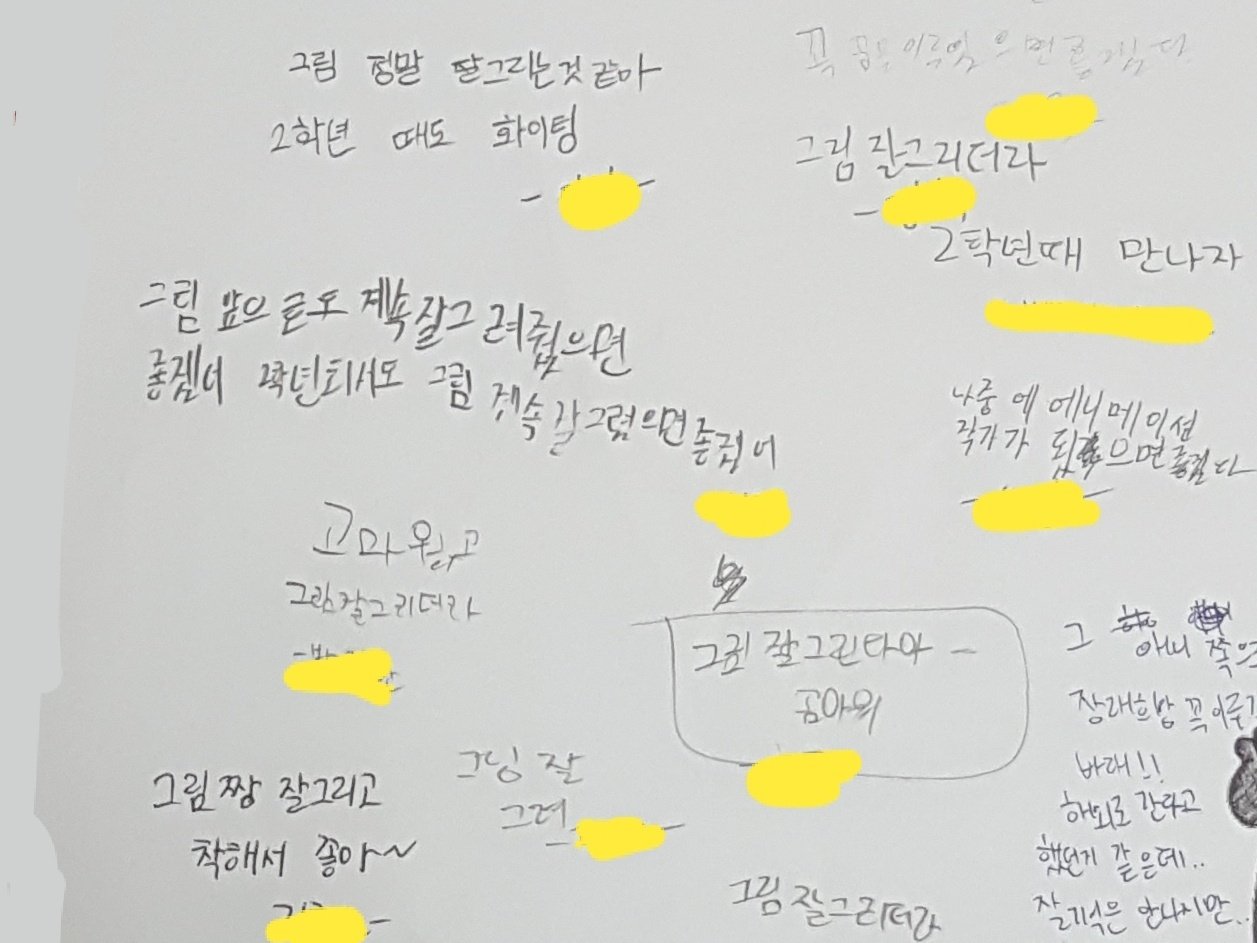 그림 정말 잘그리는것 같아
2학년 때도 화이팅
꼭 꿈을 이루었으면
그림 잘그리더라
2학년때 만나자
그림 앞으로도 계속 잘그려줬으면
좋겠어 2학년되서도 그림 계속 잘그렸으면 좋겠어
나중에 에니메이션
작가가 됬으면 좋겠다
고마웠고
그림잘그리더라
그림 잘그린다아
고마워
그 아니 쭉
장래희망 꼭 이루기
바래!!
해외로 간다고
했던거 같은데..
잘 기억은 안나지만..
그림 짱 잘그리고
착해서 좋아~
그림 잘
그려
그림 잘그리더라